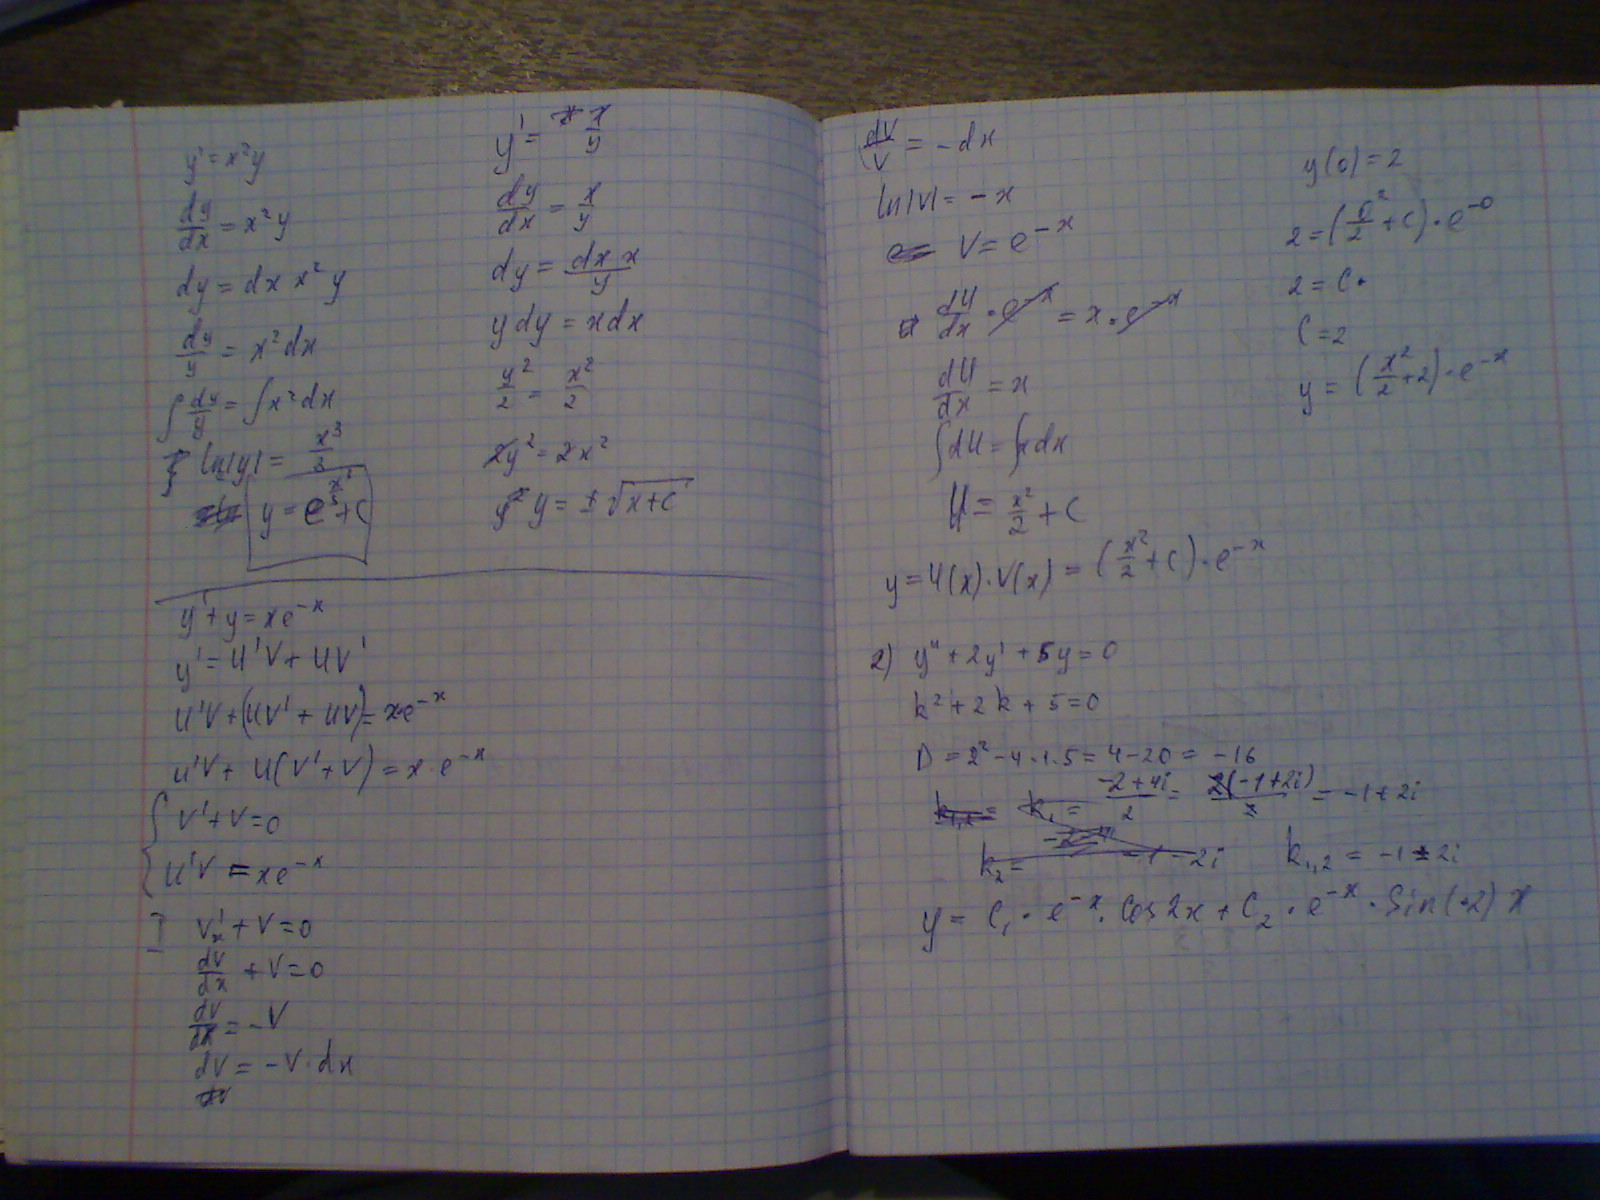 y' = x²y
dy/dx = x²y
dy = dx x² y
dy/y = x²dx
∫ dy/y = ∫x²dx
ln|y| = x³/3
y = e^(x³/3) + C
y' = x/y
dy/dx = x/y
dy = dx x/y
y dy = x dx
y²/2 = x²/2
2y² = 2x²
y = ± √x+c
y' + y = xe^-x
y' = u'v + uv'
u'v + (uv' + uv) = xe^-x
u'v + u(v' + v) = x · e^-x
{ v' + v = 0
u'v = xe^-x
I v'x + v = 0
dv/dx + v = 0
dv/dx = -v
dv = -v · dx
dv/v = -dx
ln|v| = -x
v = e^-x
du/dx · e^-x = x · e^-x
du/dx = x
∫du = ∫xdx
u = x²/2 + C
y = u(x) · v(x) = (x²/2 + C) · e^-x
y(0) = 2
2 = (0²/2 + C) · e^-0
2 = C ·
C = 2
y = (x²/2 + 2) · e^-x
2) y" + 2y' + 5y = 0
k² + 2k + 5 = 0
D = 2² - 4 · 1 · 5 = 4 - 20 = -16
k₁ = -2+4i/2 = 2(-1+2i)/2 = -1+2i
k₂ = -1-2i k₁,₂ = -1 ± 2i
y = C₁ · e^-x · cos 2x + C₂ · e^-x · Sin(·2) x